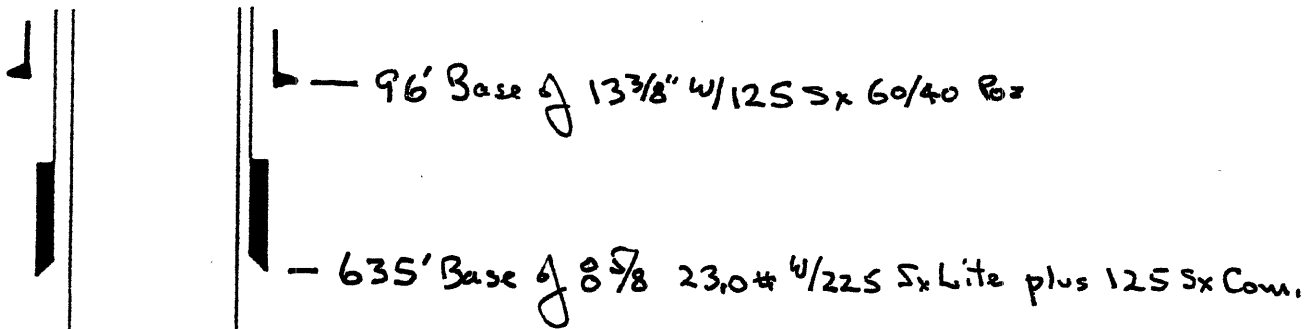 — 96' Base of 13 3/8" W/125 Sx 60/40 Poz
— 635' Base of 8 5/8 23.0# W/225 Sx Lite plus 125 Sx Com.